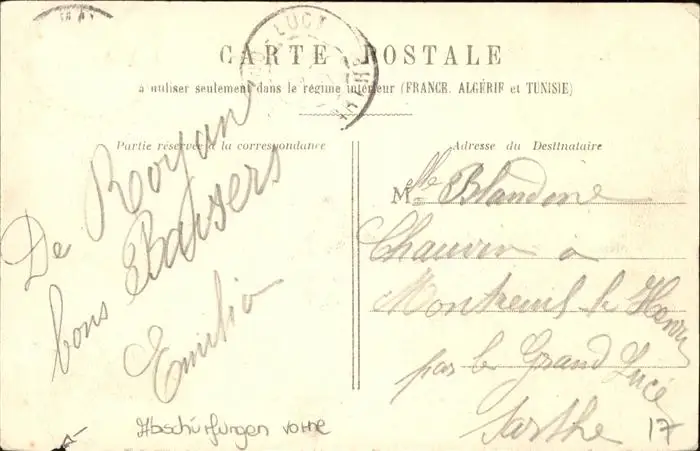 CARTE POSTALE
à utiliser seulement dans le régime intérieur (FRANCE, ALGÉRIE et TUNISIE)
Partie réservée à la correspondance
De Royan
bons Baisers
Emilia
Abschürfungen vorne
Adresse du Destinataire
Mlle Blandine
Chauvin à
Montreuil le Henry
par le Grand Lucé
Sarthe
17